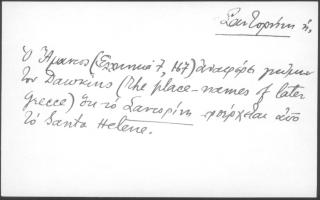 Σαντορίνη ἡ,
Ὁ Ἄμαντος (Ἑλληνικά 7, 167) ἀναφέρει γνώμην
τοῦ Dawkins (The place-names of later
Greece) ὅτι τὸ Σαντορίνη προέρχεται ἀπὸ
τὸ Santa Helene.